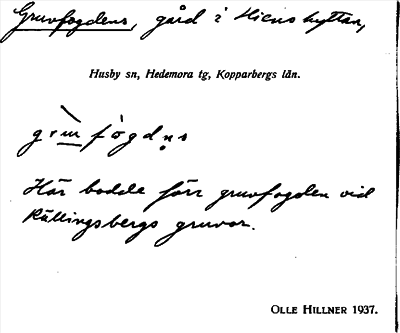 Gruvfogdens, gård i Stiernshyttan,
Husby sn, Hedemora tg, Kopparbergs län.
Här bodde förr gruvfogden vid
Rällingsbergs gruvor.
OLLE HILLNER 1937.